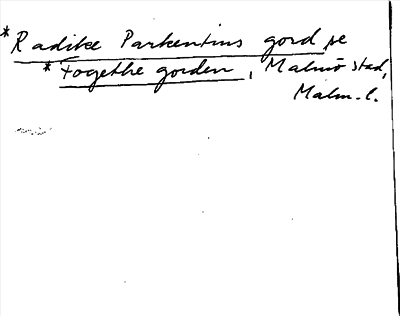 *Radike Parkentins gord se
*Fogethe gorden, Malmö stad,
Malm. l.